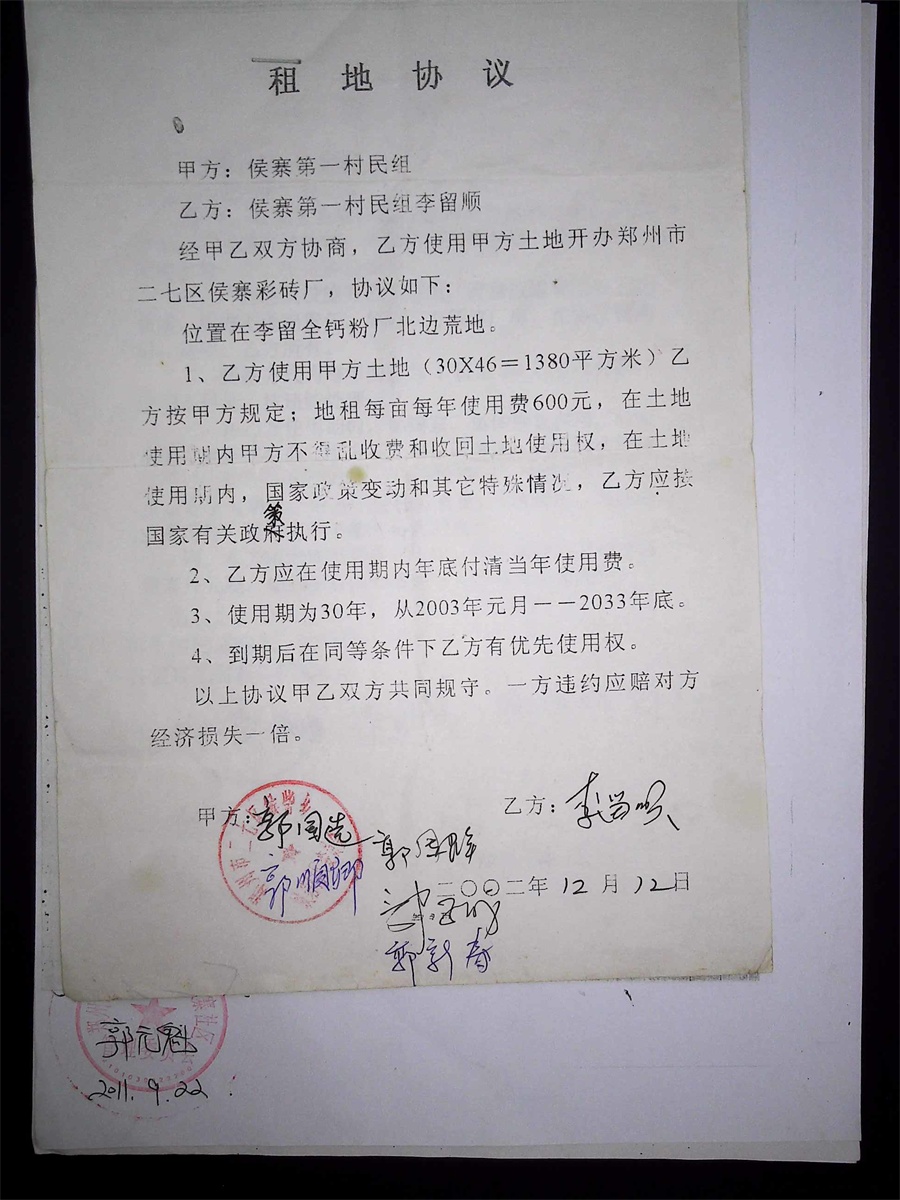 租地协议
甲方：侯寨第一村民组
乙方：侯寨第一村民组李留顺
经甲乙双方协商，乙方使用甲方土地开办郑州市
二七区侯寨彩砖厂，协议如下：
位置在李留全钙粉厂北边荒地。
1、乙方使用甲方土地（30X46＝1380平方米）乙
方按甲方规定；地租每亩每年使用费600元，在土地
使用期内甲方不得乱收费和收回土地使用权，在土地
使用期内，国家政策变动和其它特殊情况，乙方应按
国家有关政策执行。
2、乙方应在使用期内年底付清当年使用费。
3、使用期为30年，从2003年元月－－2033年底。
4、到期后在同等条件下乙方有优先使用权。
以上协议甲乙双方共同规守。一方违约应赔对方
经济损失一倍。
甲方：郭国选 乙方：李留顺
郭顺卿
二〇〇二年12月12日
郭新春
郭元魁
2011.9.22